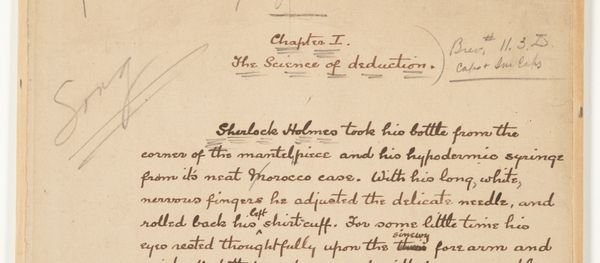 Chapter I.
The Science of deduction.
Brev. # 11. 3. D.
Caps + Sm Caps
Song
Sherlock Holmes took his bottle from the
corner of the mantelpiece and his hypodermic syringe
from its neat Morocco case. With his long, white,
nervous fingers he adjusted the delicate needle, and
rolled back his left shirtcuff. For some little time his
eyes rested thoughtfully upon the sinewy forearm and